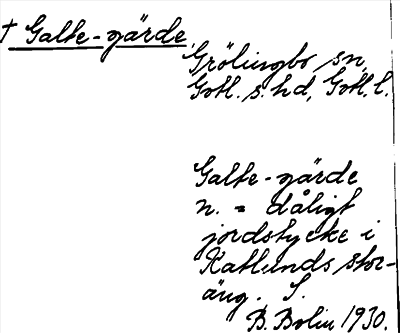 † Galte-gärde,
Grötlingbo sn,
Gotl. s. hd, Gotl. l.
Galte-gärde
n. = dåligt
jordstycke i
Kattlunds stor-
äng. S.
B. Bolin 1930.